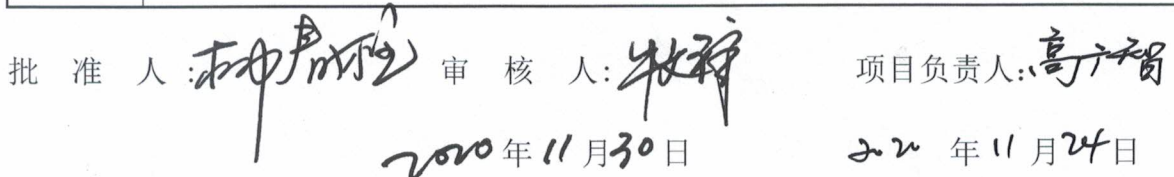 批准人: 审核人: 项目负责人:高广智
2020年11月30日 2020年11月24日